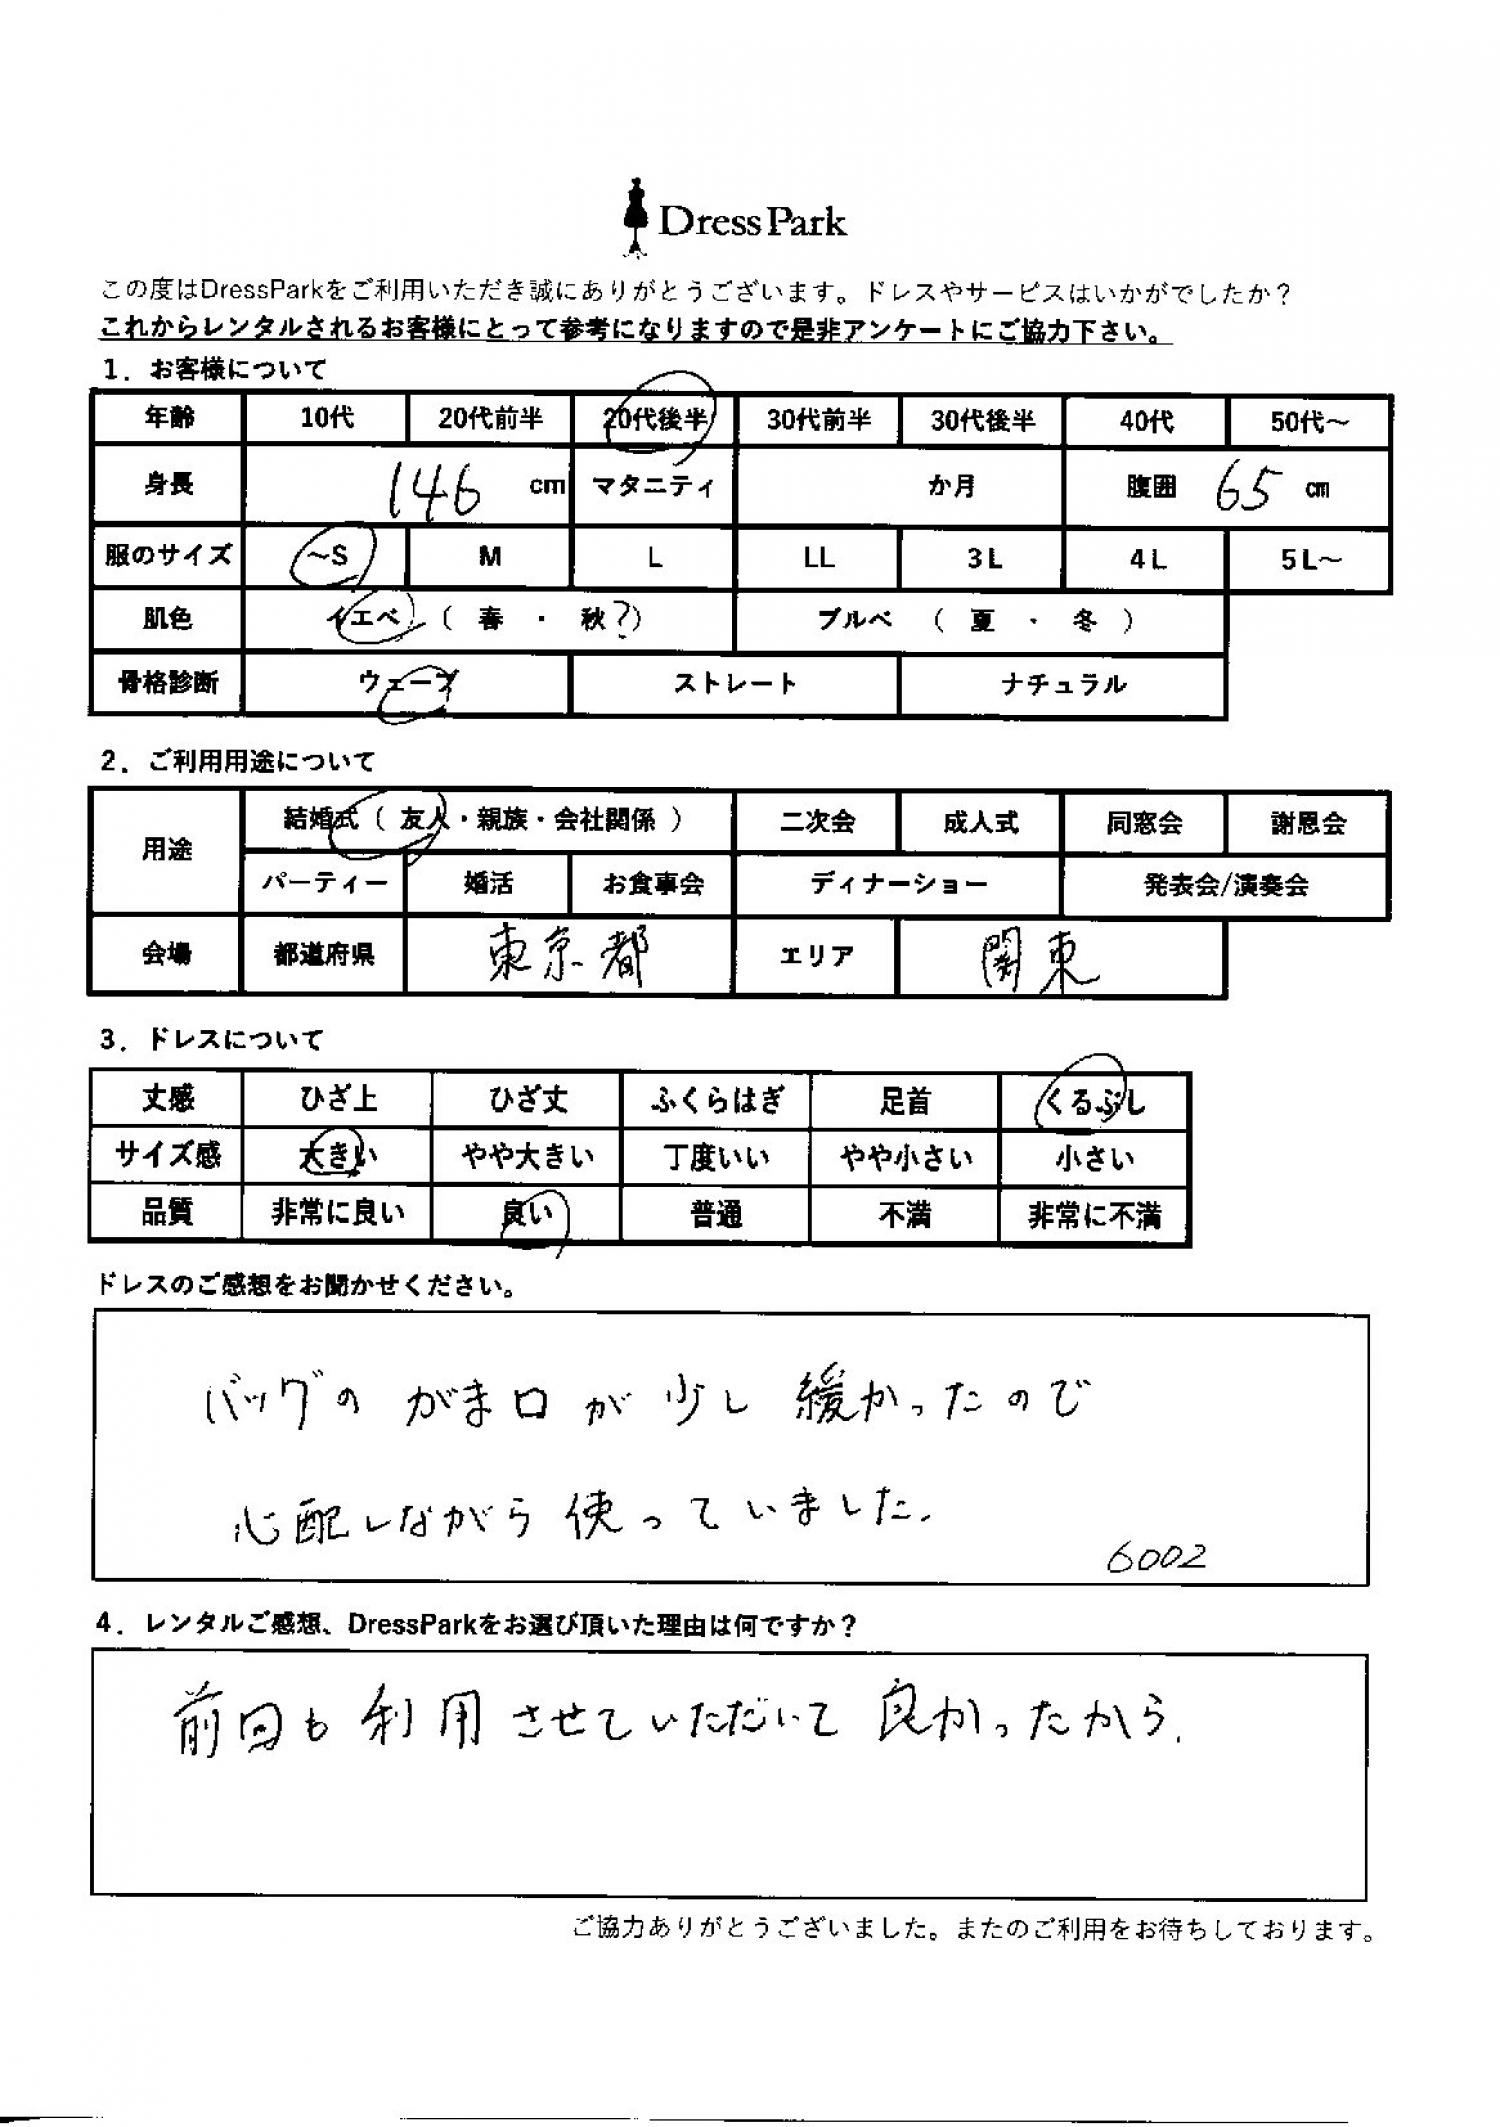 Dress Park
この度はDressParkをご利用いただき誠にありがとうございます。ドレスやサービスはいかがでしたか？
これからレンタルされるお客様にとって参考になりますので是非アンケートにご協力下さい。
1．お客様について
年齢 10代 20代前半 20代後半 30代前半 30代後半 40代 50代～
身長 146 cm マタニティ か月 腹囲 65 cm
服のサイズ ～S M L LL 3L 4L 5L～
肌色 イエベ（ 春 ・ 秋?） ブルベ （ 夏 ・ 冬 ）
骨格診断 ウェーブ ストレート ナチュラル
2．ご利用用途について
用途 結婚式（ 友人・親族・会社関係 ） 二次会 成人式 同窓会 謝恩会
パーティー 婚活 お食事会 ディナーショー 発表会/演奏会
会場 都道府県 東京都 エリア 関東
3．ドレスについて
丈感 ひざ上 ひざ丈 ふくらはぎ 足首 くるぶし
サイズ感 大きい やや大きい 丁度いい やや小さい 小さい
品質 非常に良い 良い 普通 不満 非常に不満
ドレスのご感想をお聞かせください。
バッグの がま口 が 少し 緩かったので
心配しながら 使っていました.
6002
4．レンタルご感想、DressParkをお選び頂いた理由は何ですか？
前回も利用させていただいて良かったから.
ご協力ありがとうございました。またのご利用をお待ちしております。